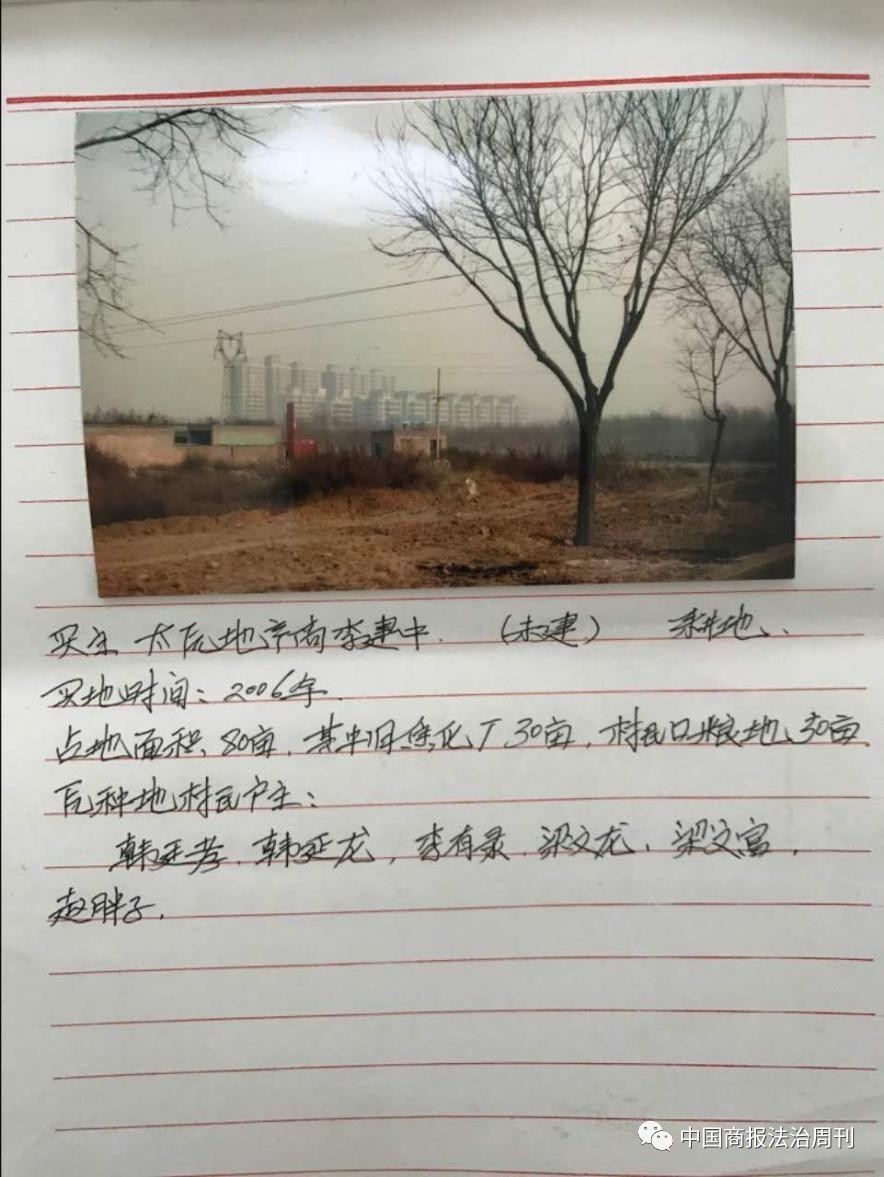 买主 太原地产商李建中. (未建) 耕地、
买地时间：2006年.
占地面积、80亩，其中旧焦化厂30亩，村民口粮地、50亩
原种地村民户主：
韩廷孝、韩延龙，李有录、梁文龙、梁文富，
赵胖子.
中国商报法治周刊